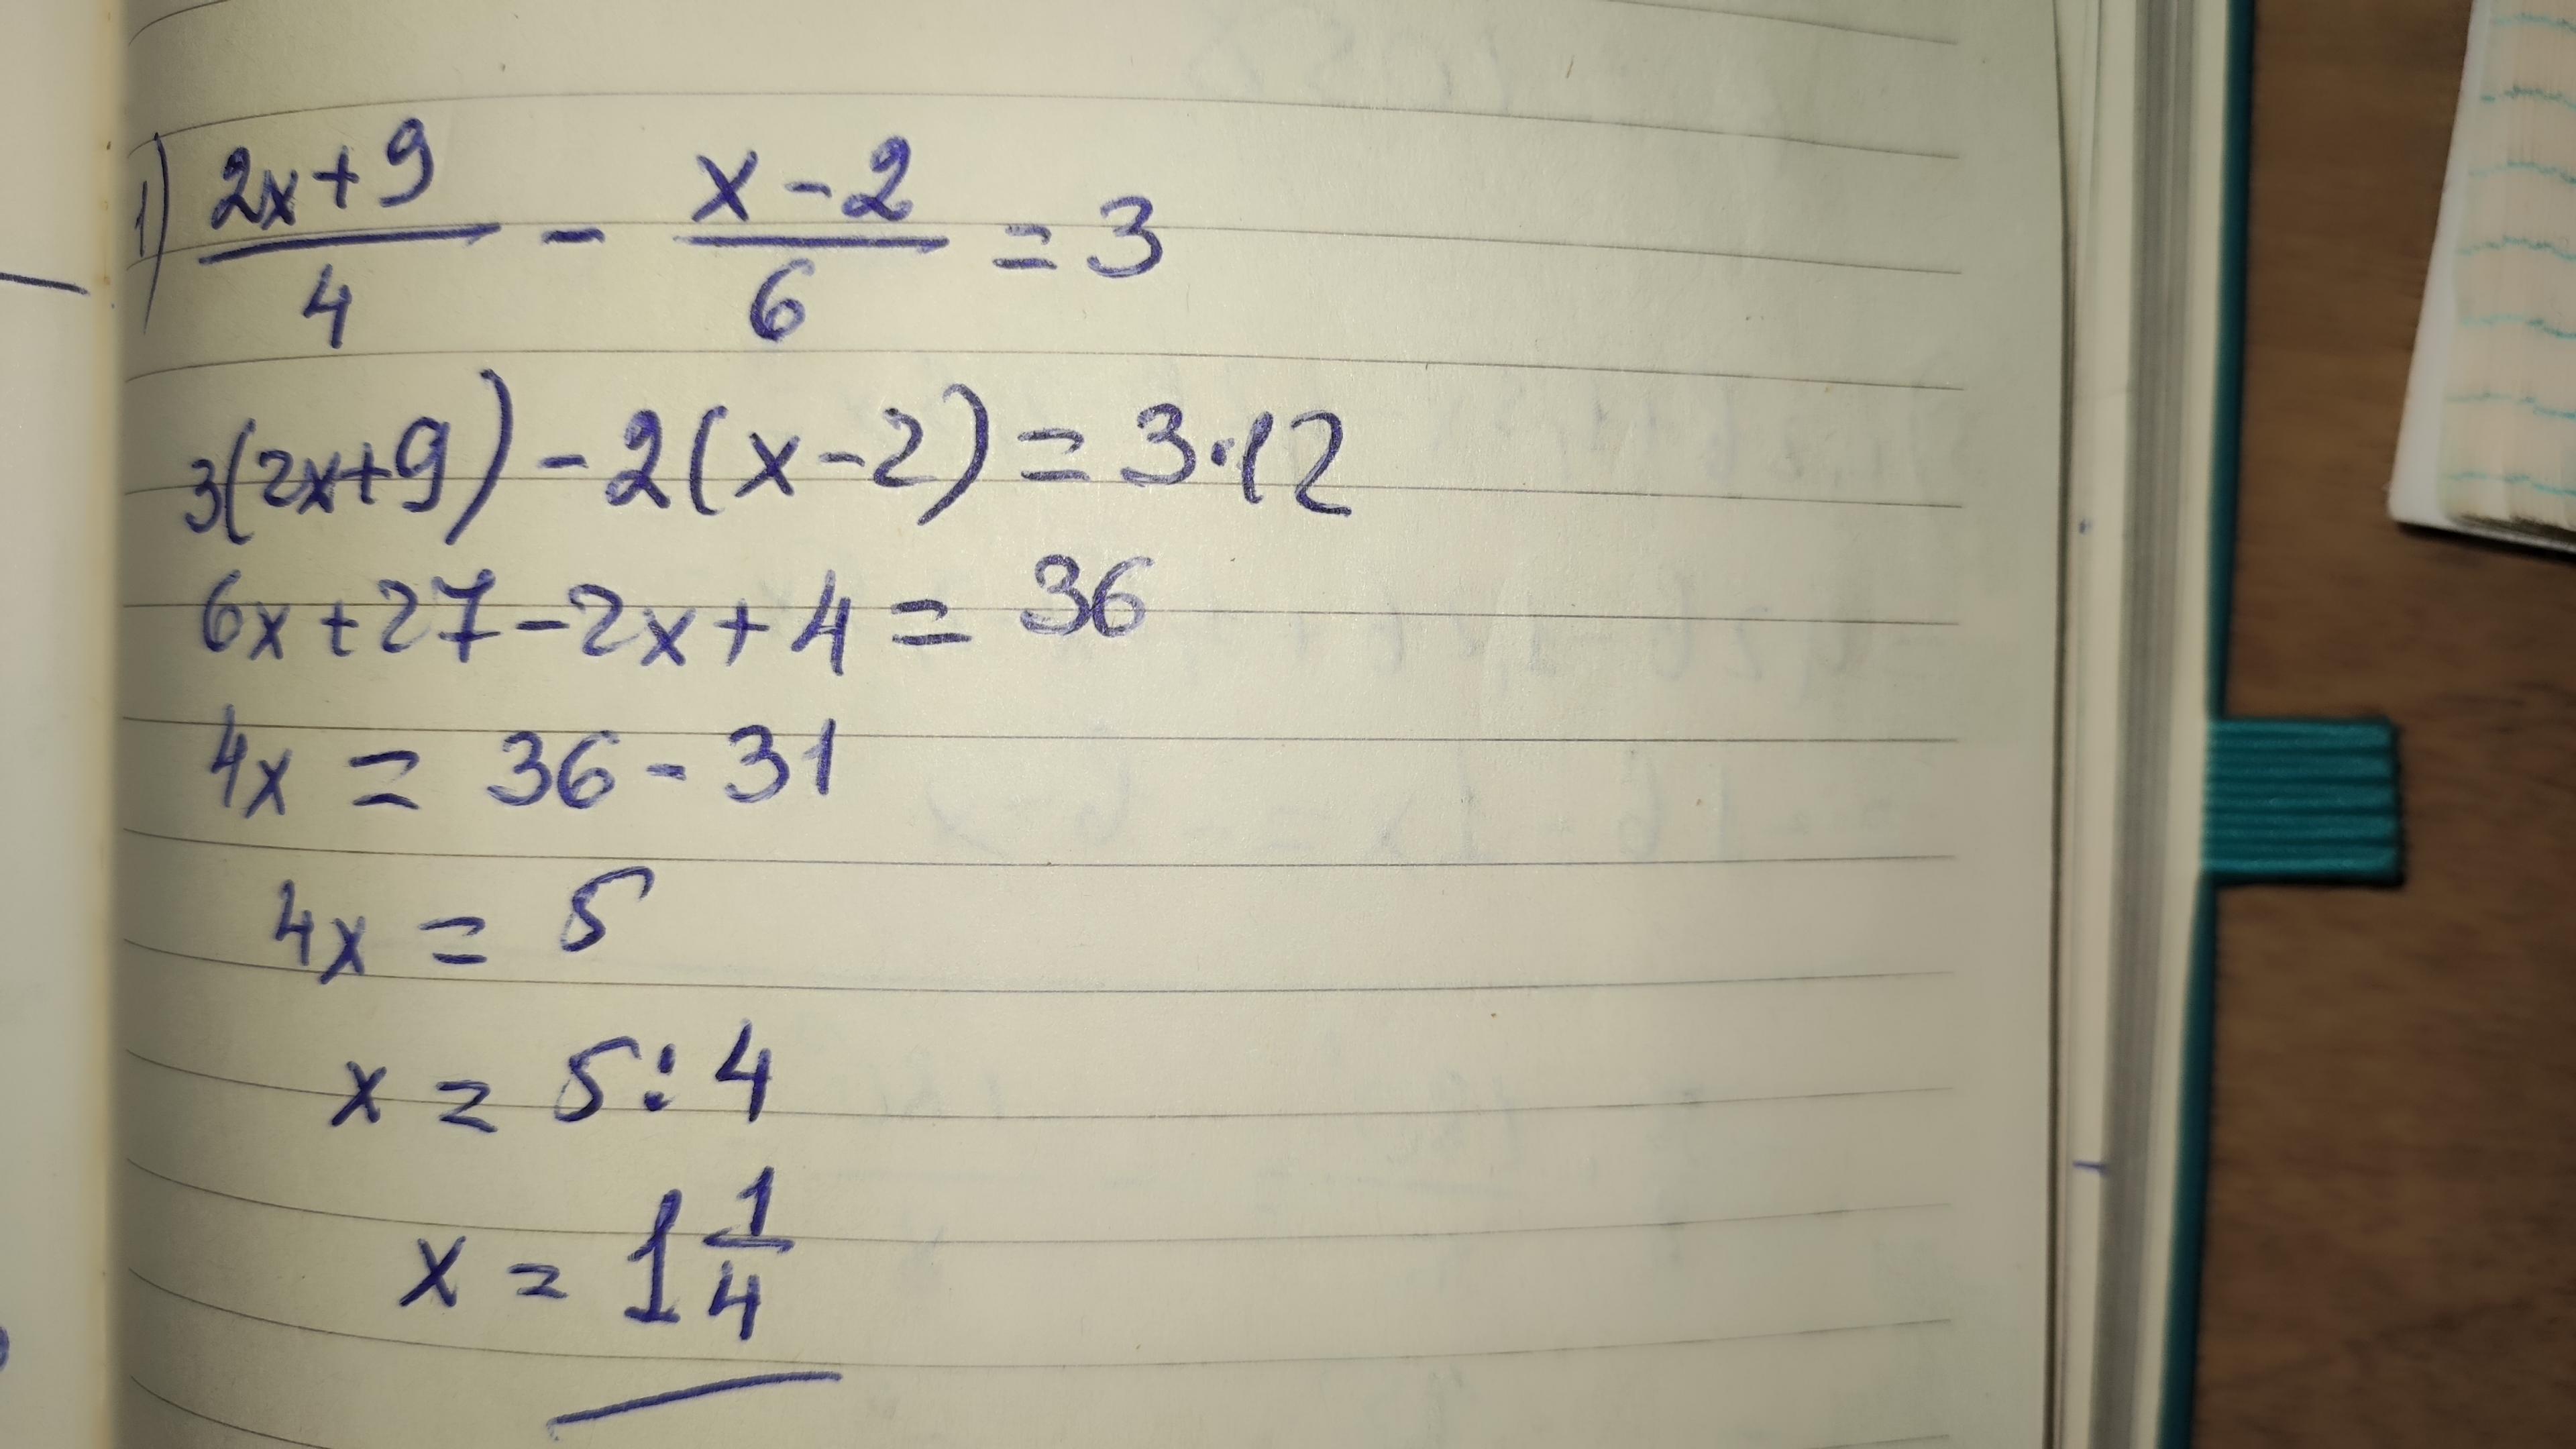 1) (2x+9)/4 - (x-2)/6 = 3
3(2x+9) - 2(x-2) = 3·12
6x+27-2x+4 = 36
4x = 36 - 31
4x = 5
x = 5:4
x = 1 1/4